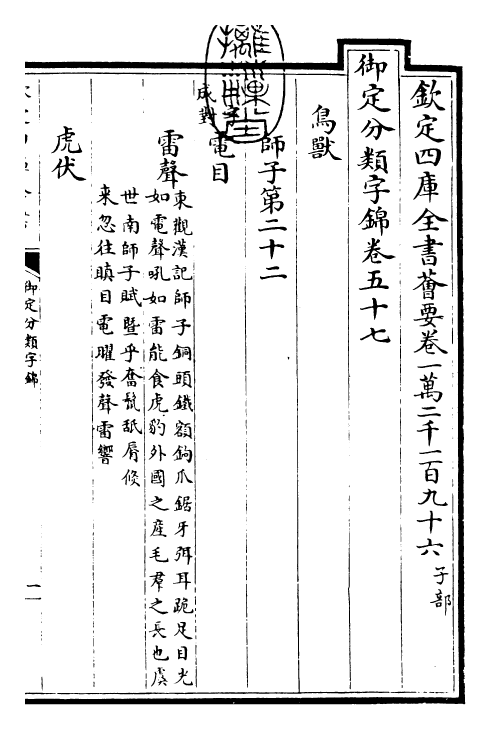 欽定四庫全書薈要卷一萬二千一百九十六 子部
御定分類字錦卷五十七
鳥獸
師子第二十二
成對
電目
雷聲
東觀漢記師子銅頭鐵額鉤爪鋸牙弭耳跪足目光
如電聲吼如雷能食虎豹外國之產毛羣之長也虞
世南師子賦暨乎奮鬣舐脣倏
来忽往瞋目電曜發聲雷響
虎伏
御定分類字錦
一